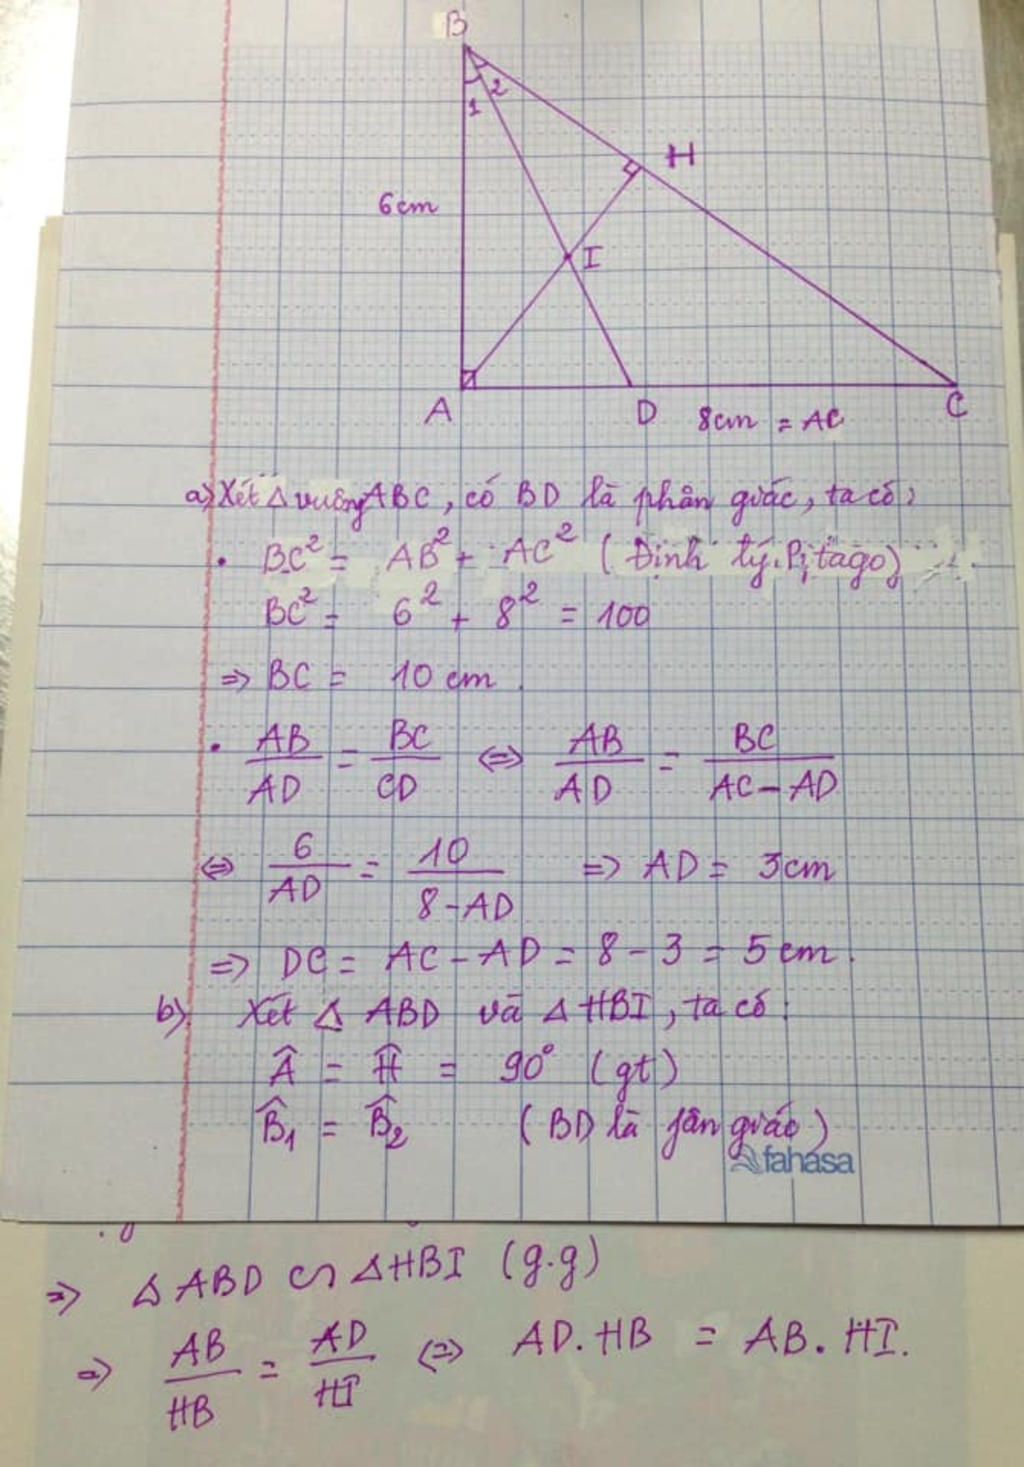 B
1 2
H
6cm
I
A D C
8cm = AC
a) Xét Δ vuông ABC, có BD là phân giác, ta có:
. BC² = AB² + AC² (Định lý Pitago)
BC² = 6² + 8² = 100
=> BC = 10 cm.
. AB/AD = BC/CD <=> AB/AD = BC/(AC - AD)
<=> 6/AD = 10/(8 - AD) => AD = 3cm
=> DC = AC - AD = 8 - 3 = 5 cm.
b) Xét Δ ABD và Δ HBI, ta có:
Â = Ĥ = 90° (gt)
B̂₁ = B̂₂ (BD là fân giác)
fahasa
=> Δ ABD ∽ Δ HBI (g.g)
=> AB/HB = AD/HI <=> AD. HB = AB. HI.